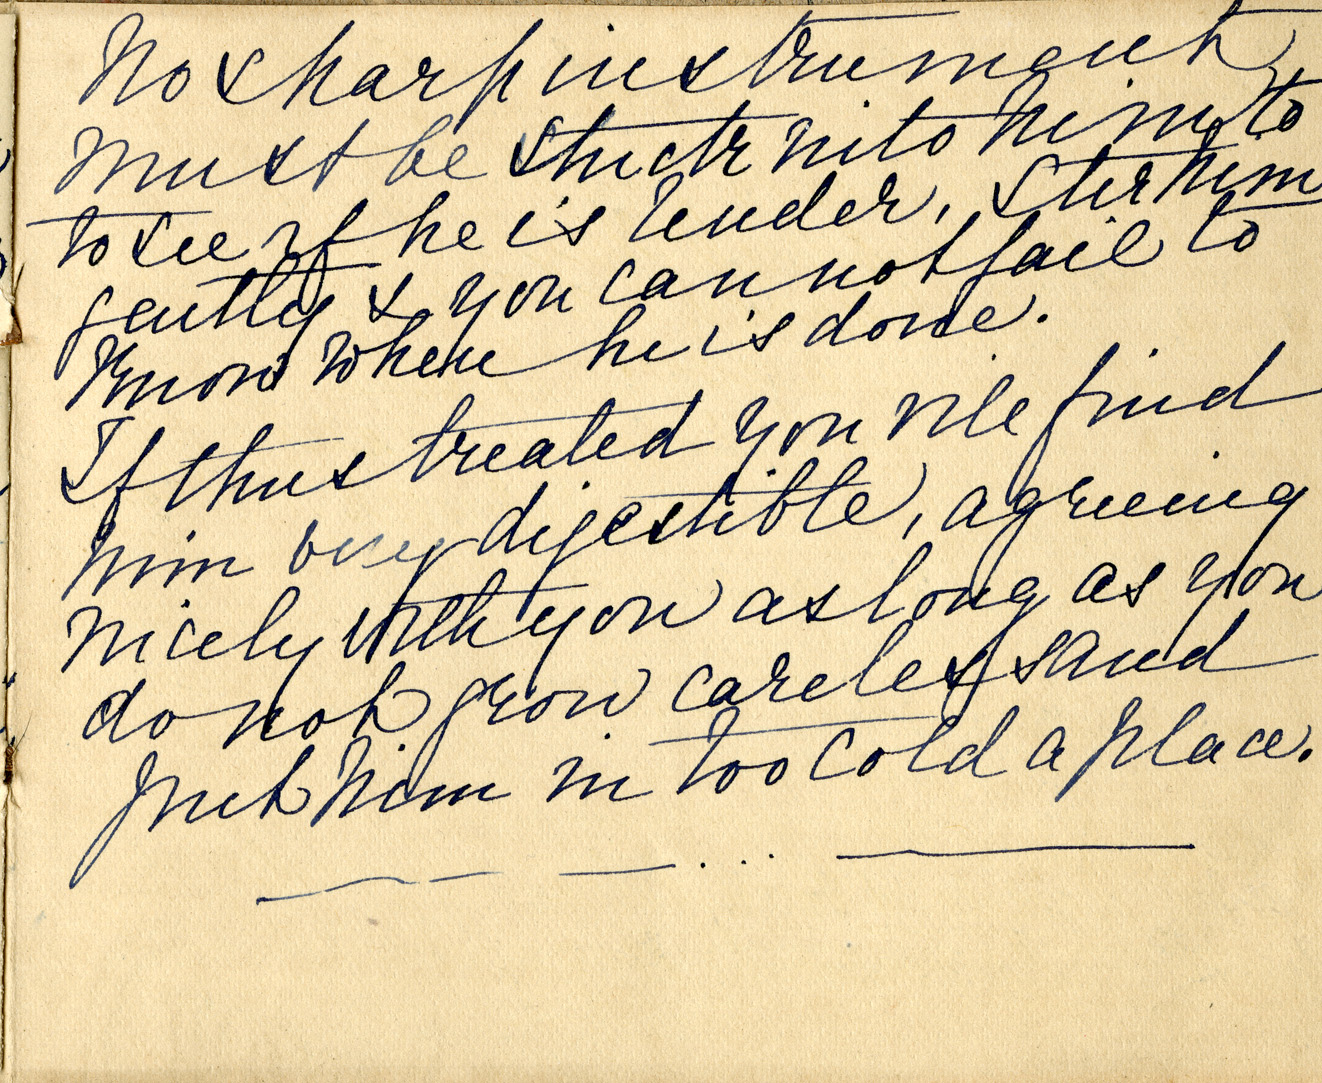 No sharp instrument
must be stuck into him to
to see if he is tender, stir him
gently & you cannot fail to
know when he is done.
If thus treated you vile find
him very digestible, agreeing
nicely with you as long as you
do not grow careless and
put him in too cold a place.